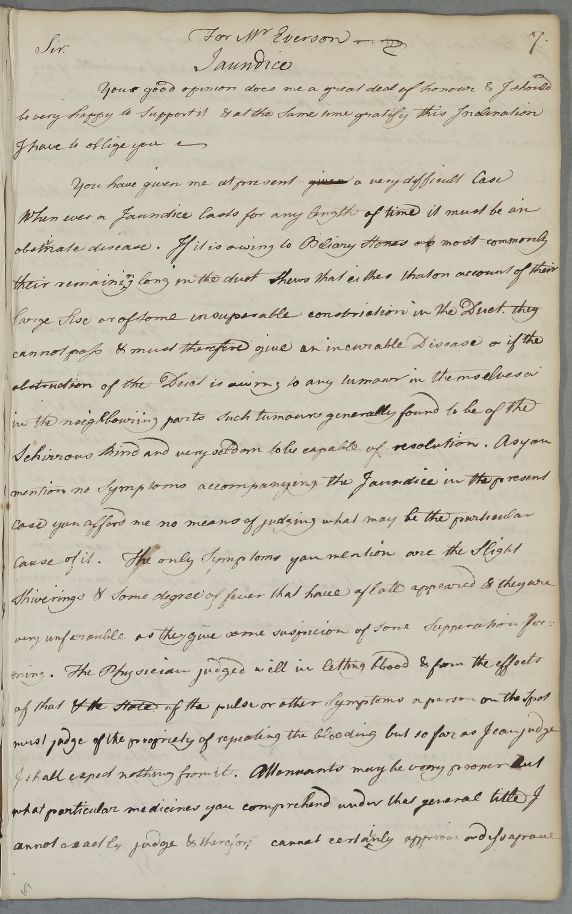 For Mr Everson 7.
Sir.
Jaundice
Your good opinion does me a great deal of honour & I should
be very happy to support it & at the same time gratify this Inclination
I have to oblige you
You have given me at present given a very difficult Case
When ever a Jaundice lasts for any length of time it must be an
obstinate disease. If it is owing to Biliary Stones as most commonly
their remaining long in the duct shews that either that on account of their
large Size or of some insuperable constriction in the Duct. they
cannot pass & must therefore give an incurable Disease or if the
obstruction of the Duct is owing to any tumour in themselves or
in the neighbouring parts such tumours generally found to be of the
Schirrous kind and very seldom to be capable of resolution. As you
mention no Symptoms accompanying the Jaundice in the present
case you afford me no means of judging what may be the particular
Cause of it. The only Symptoms you mention are the Slight
Shiverings & some degree of fever that have of late appeared & they are
very unfavourable as they give some suspicion of some Suppuration for=
ming. The Physician judged well in letting blood & from the effects
of that & the state of the pulse or other Symptoms a person on the Spot
must judge of the propriety of repeating the bleeding but so far as I can judge
I shall expect nothing from it. Attenuants may be very proper but
what particular medicines you comprehend under that general title I
cannot exactly judge & therefore cannot certainly approve or disaprove